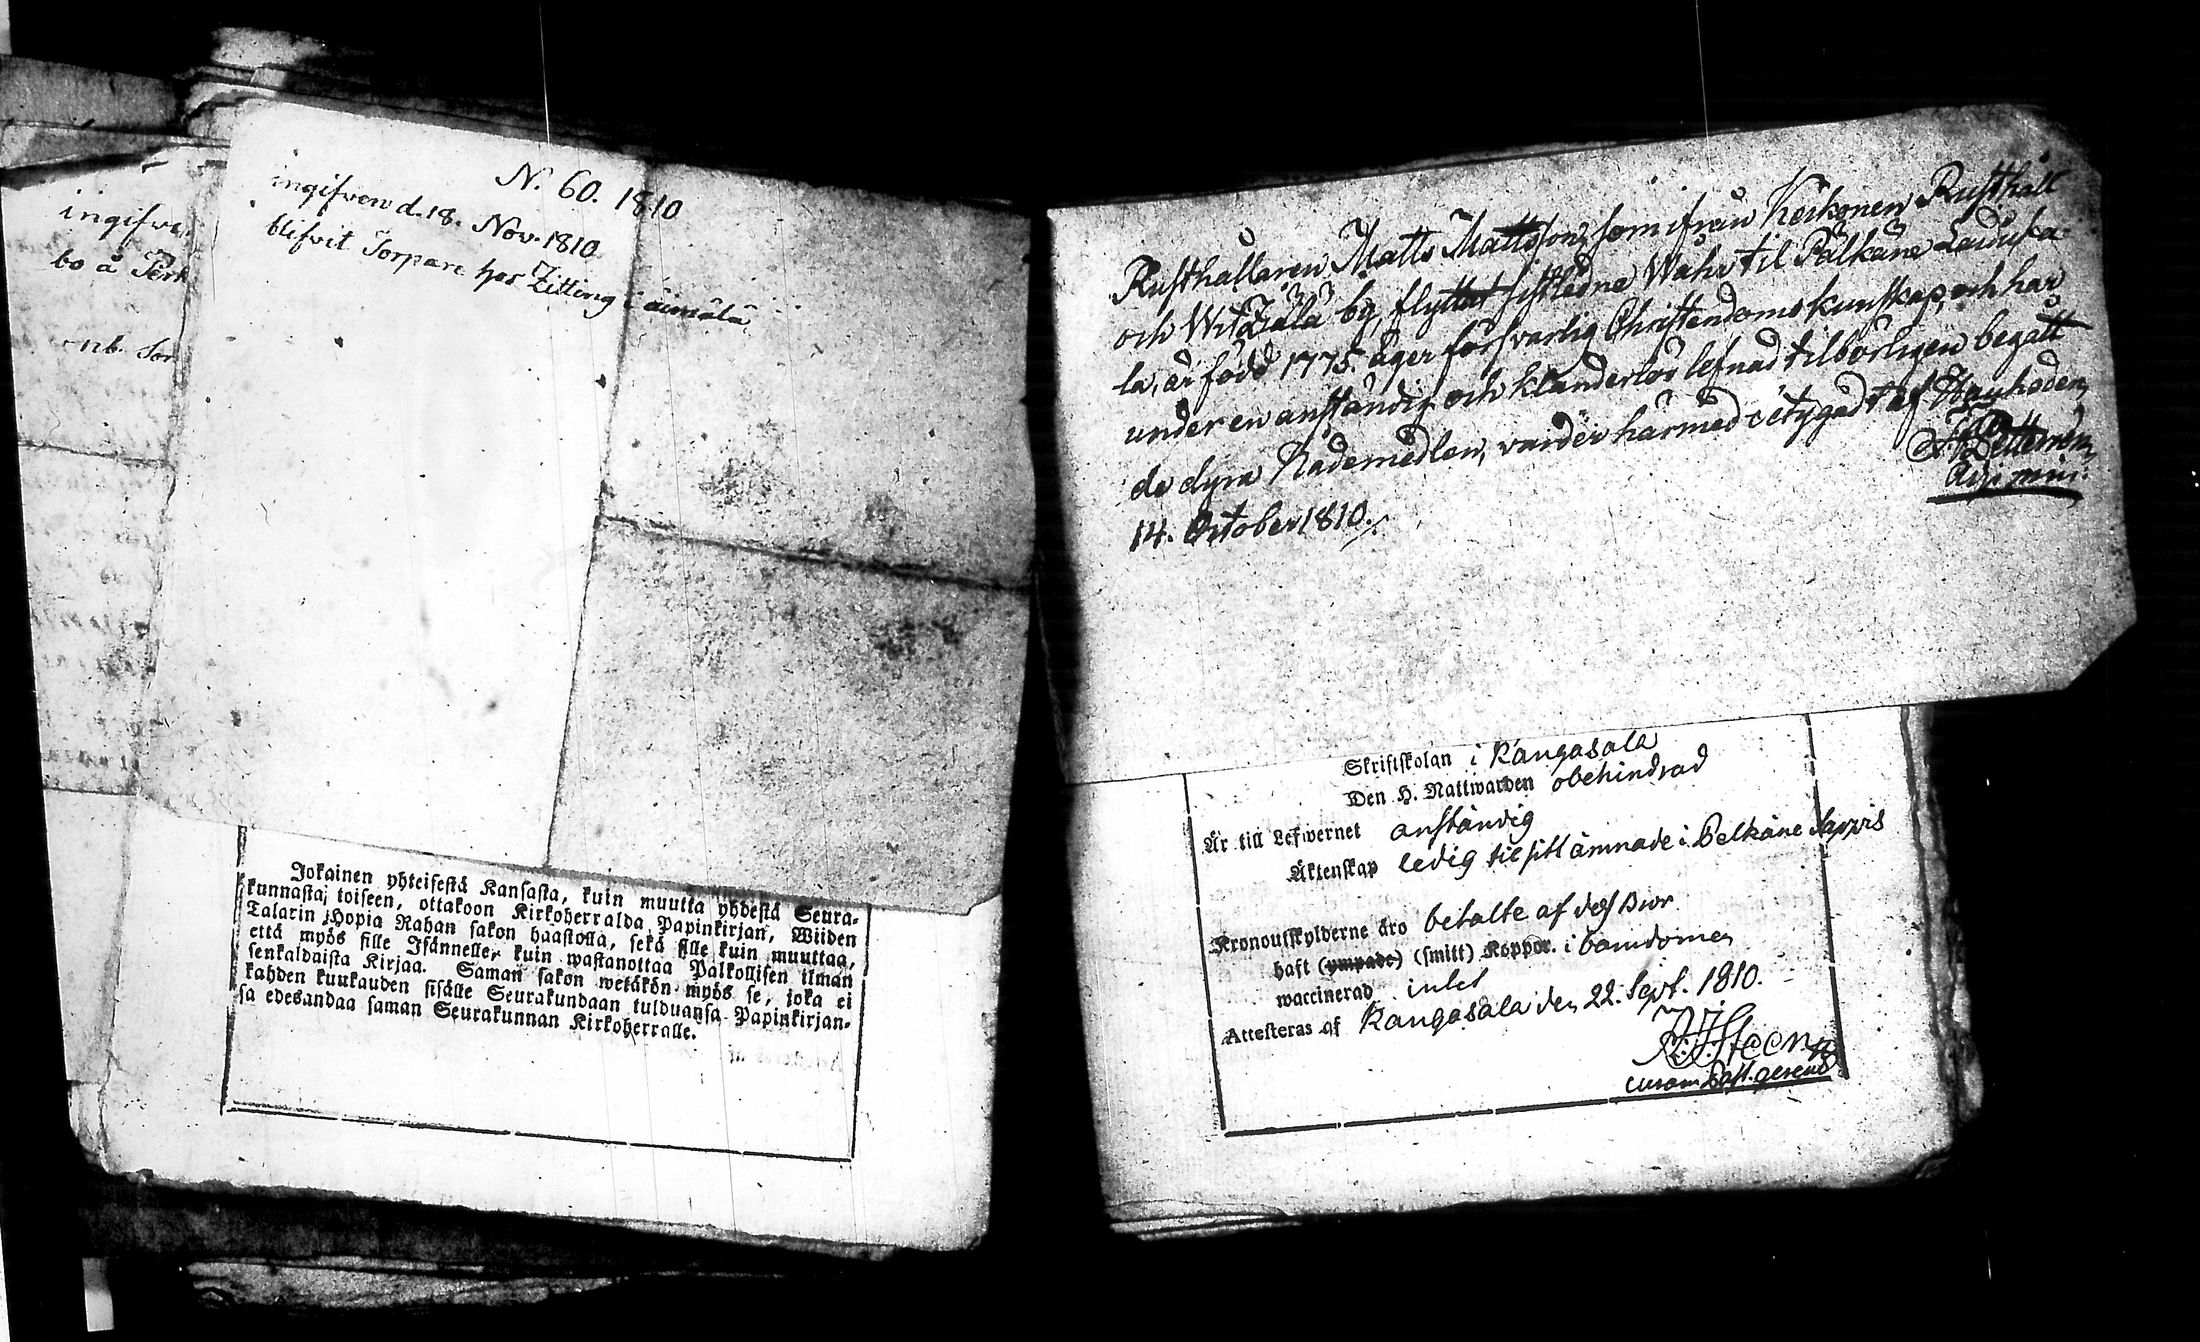 ingifve
bo å Perk
nb. Tor
N. 60. 1810
ingifven d. 18. Nov. 1810
blifvit Torpare hos Zitting i äimälä
Jokainen yhteisestä Kansasta, kuin muutta yhdestä Seura-
kunnasta toiseen, ottakoon Kirkoherralda Papinkirjan, Wiiden
Talarin Hopia Rahan sakon haastolla, sekä sille kuin muuttaa,
että myös sille Isännelle, kuin wastanottaa Palkollisen ilman
senkaldaista Kirjaa. Saman sakon wetäkön myös se, joka ei
kahden kuukauden sisälle Seurakundaan tulduansa Papinkirjan-
sa edesandaa saman Seurakunnan Kirkoherralle.
Rusthållaren Matts Mattsson, som ifrån Keikonen Rusthåll
och Wilzälä by, flyttat sistledne Wåhr til Pälkäne
la, är född 1775. äger försvarlig Christendoms kunskap, och har
under en anständig och klanderlös lefnad tilbörligen begått
de dyra Nådemedlen, varder härmed betygadt af Hauho den
14. October 1810.
Adj: min:
Skriftskolan i Kangasala
Den H. Nattwarden obehindrad
Är till Lefwernet anständig
Äktenskap ledig til sitt ämnade i Pelkäne
Kronoutskylderne äro betalte af dess Bror
haft (ympade) (smitt) Koppor. i barndomen
waccinerad intet
Attesteras af Kangasala den 22. Sept. 1810.
curam Past. gerens